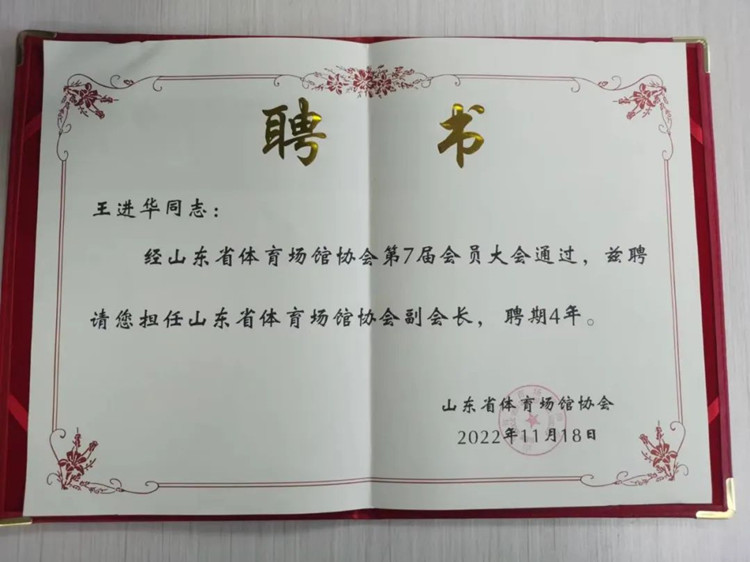 聘书
王进华同志：
经山东省体育场馆协会第7届会员大会通过，兹聘
请您担任山东省体育场馆协会副会长，聘期4年。
山东省体育场馆协会
2022年11月18日